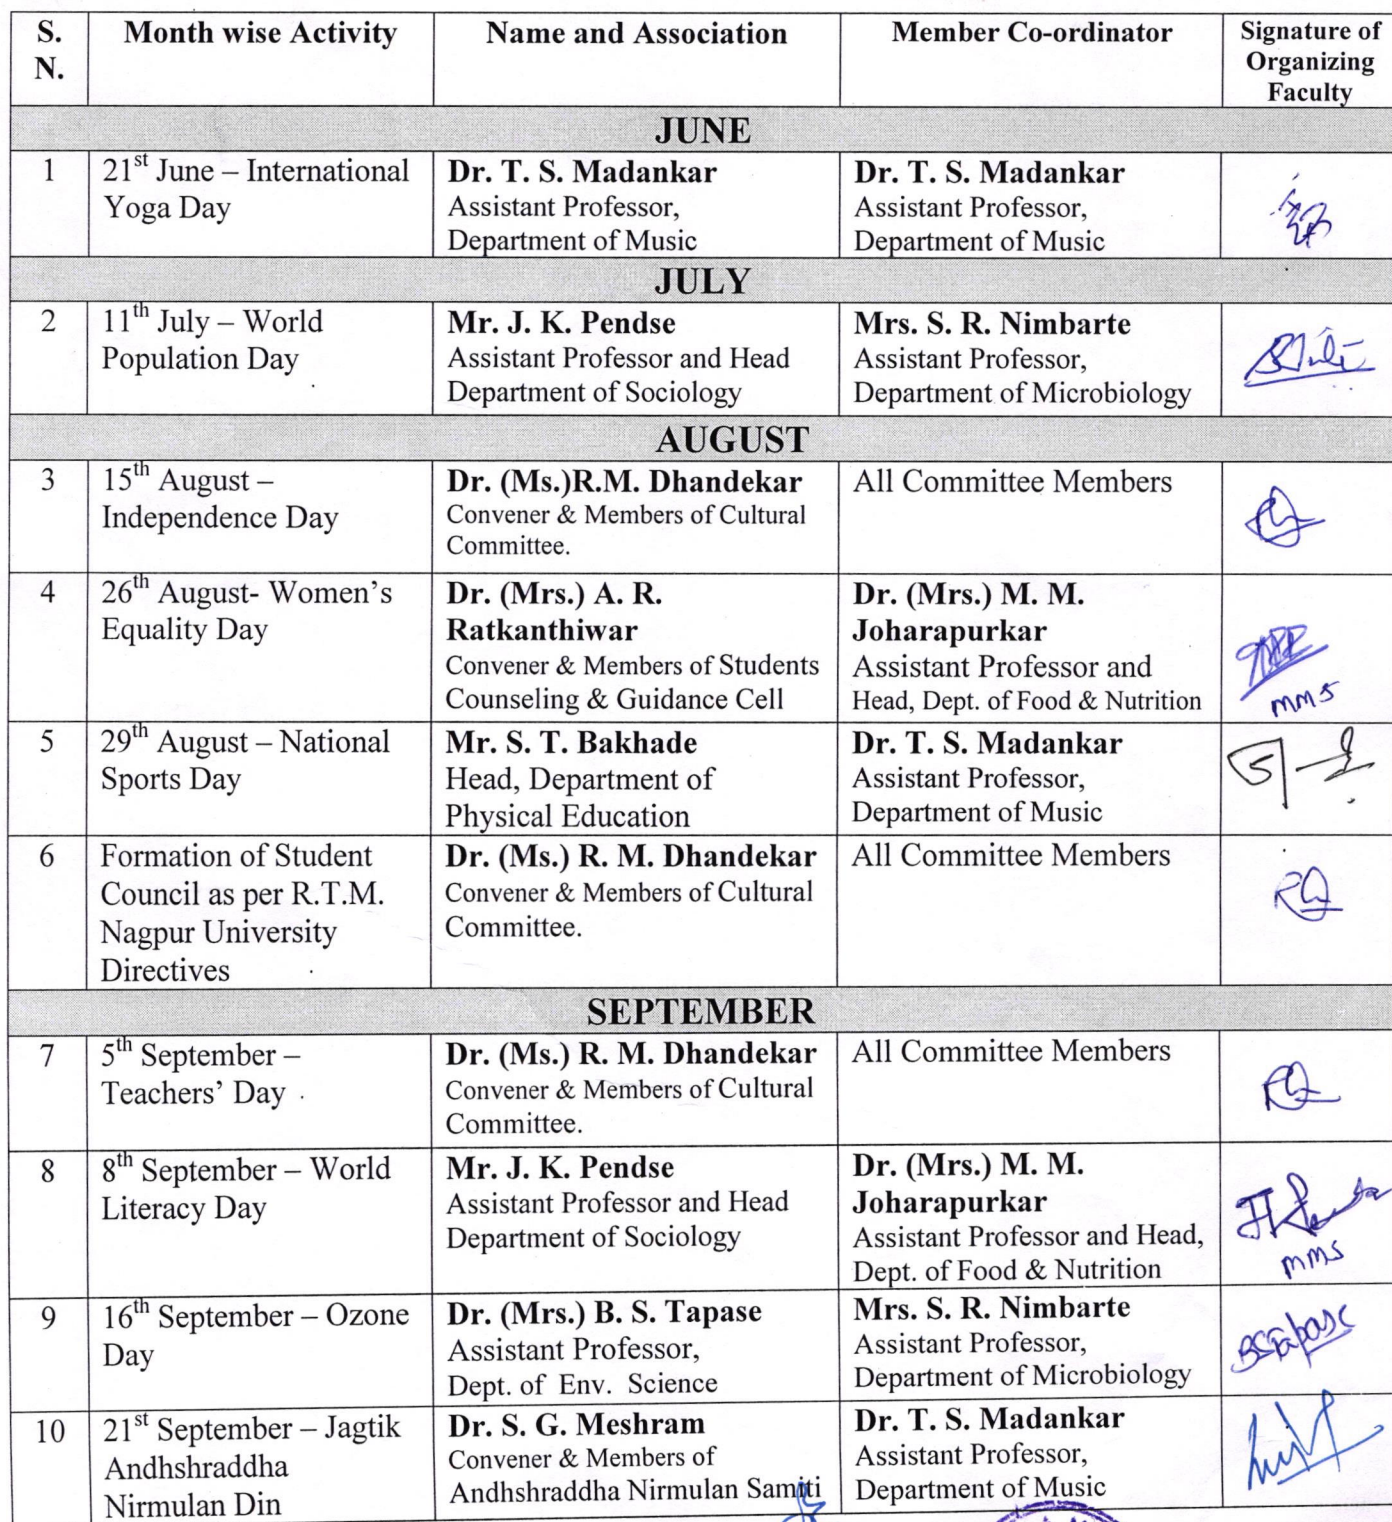 S. N. Month wise Activity Name and Association Member Co-ordinator Signature of Organizing Faculty
JUNE
1 21st June – International Yoga Day
Dr. T. S. Madankar
Assistant Professor,
Department of Music
Dr. T. S. Madankar
Assistant Professor,
Department of Music
JULY
2 11th July – World Population Day
Mr. J. K. Pendse
Assistant Professor and Head
Department of Sociology
Mrs. S. R. Nimbarte
Assistant Professor,
Department of Microbiology
AUGUST
3 15th August – Independence Day
Dr. (Ms.)R.M. Dhandekar
Convener & Members of Cultural
Committee.
All Committee Members
4 26th August- Women's Equality Day
Dr. (Mrs.) A. R.
Ratkanthiwar
Convener & Members of Students
Counseling & Guidance Cell
Dr. (Mrs.) M. M.
Joharapurkar
Assistant Professor and
Head, Dept. of Food & Nutrition
5 29th August – National Sports Day
Mr. S. T. Bakhade
Head, Department of
Physical Education
Dr. T. S. Madankar
Assistant Professor,
Department of Music
6 Formation of Student Council as per R.T.M. Nagpur University Directives
Dr. (Ms.) R. M. Dhandekar
Convener & Members of Cultural
Committee.
All Committee Members
SEPTEMBER
7 5th September – Teachers' Day
Dr. (Ms.) R. M. Dhandekar
Convener & Members of Cultural
Committee.
All Committee Members
8 8th September – World Literacy Day
Mr. J. K. Pendse
Assistant Professor and Head
Department of Sociology
Dr. (Mrs.) M. M.
Joharapurkar
Assistant Professor and Head,
Dept. of Food & Nutrition
9 16th September – Ozone Day
Dr. (Mrs.) B. S. Tapase
Assistant Professor,
Dept. of Env. Science
Mrs. S. R. Nimbarte
Assistant Professor,
Department of Microbiology
10 21st September – Jagtik Andhshraddha Nirmulan Din
Dr. S. G. Meshram
Convener & Members of
Andhshraddha Nirmulan Samiti
Dr. T. S. Madankar
Assistant Professor,
Department of Music